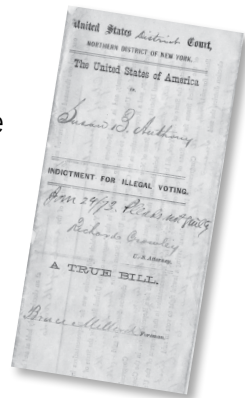 United States District Court,
NORTHERN DISTRICT OF NEW YORK.
The United States of America
vs.
Susan B. Anthony
INDICTMENT FOR ILLEGAL VOTING.
Pleads not guilty
Richard Crowley
U. S. Attorney.
A TRUE BILL.
Foreman.
e